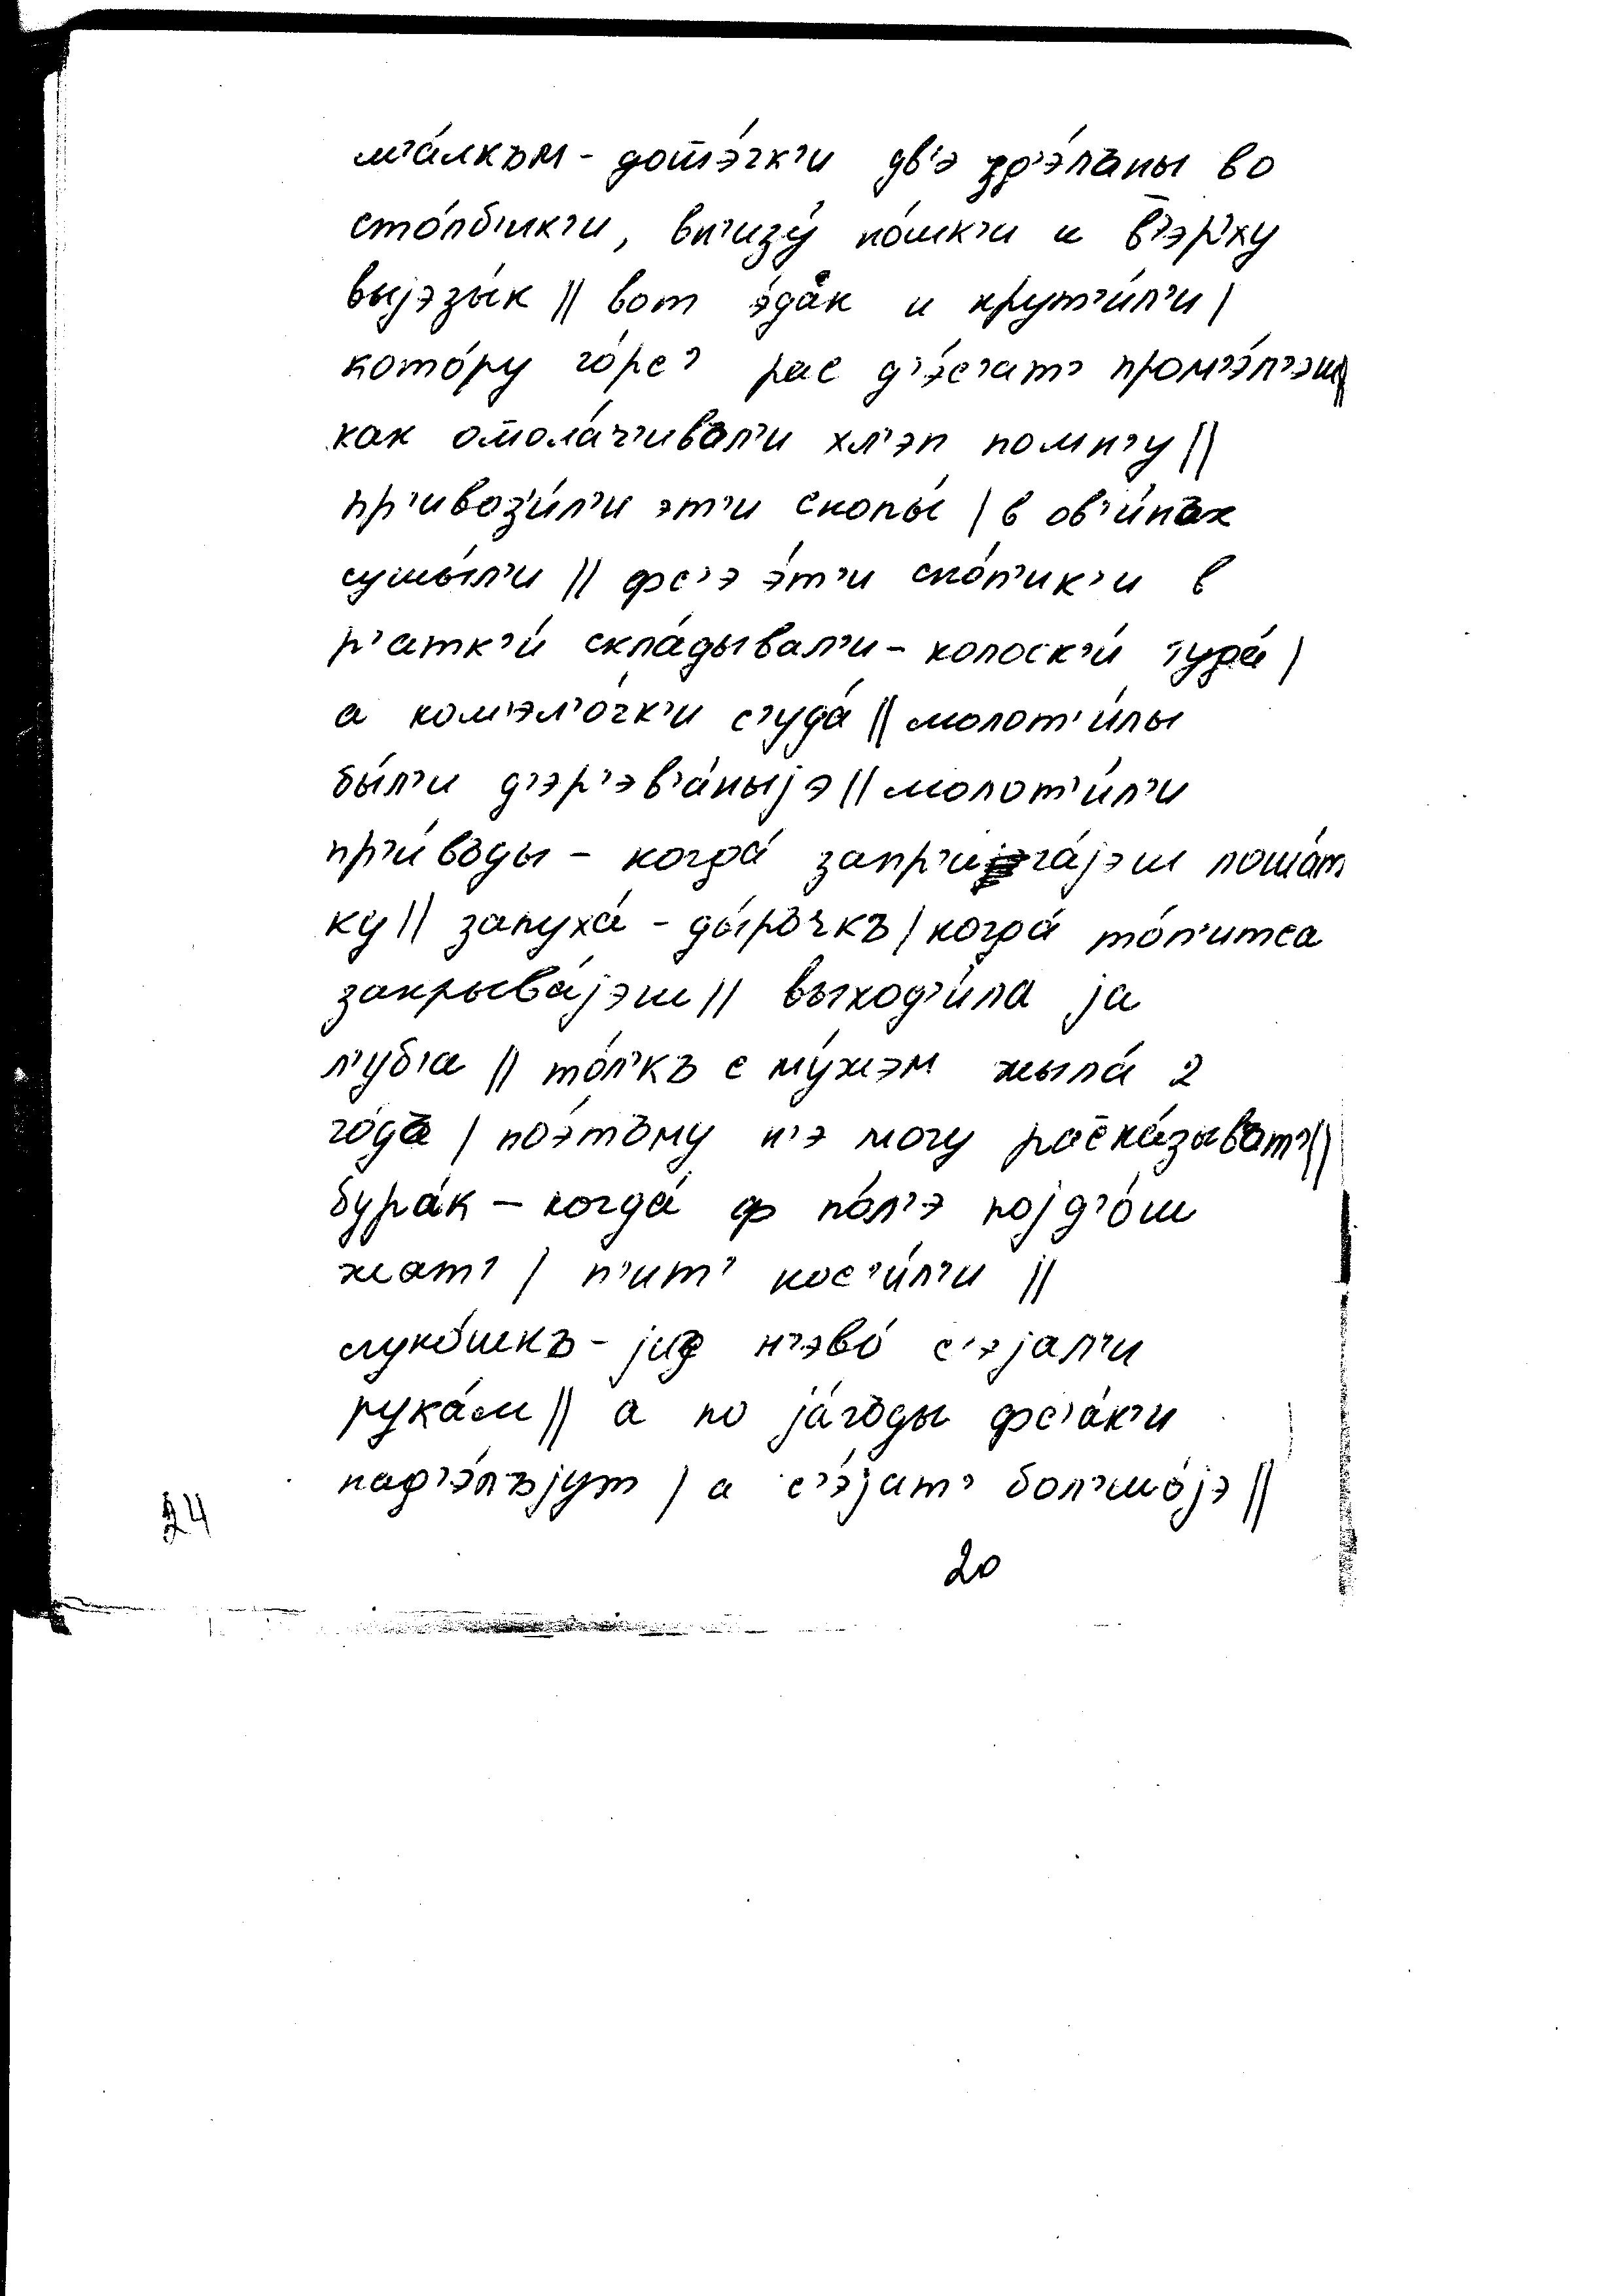 м'а́лкъм - дот̅э́чк'и дв'э зд'э́лъны во
сто́лб'ик'и, вн'изу́ но́шк'и и в̅'э́рху
выjэзы́к || вот э́дак и крут'и́л'и |
кото́ру го́рс' рас д'э́с'ат' пром'э́л'эш||
как от̅ола́ч'ивал'и хл'эп помн'у ||
пр'ивоз'и́л'и эт'и снопы́ | в ов'и́нъх
сушы́л'и || фс'э э́т'и сно́п'ик'и в
р'атк'и́ скла́дывал'и - колоск'и́ туда́ |
а ком'эл'о́чк'и с'уда́ || молот'и́лы
бы́л'и д'эр'эв'а́ныjэ || молот'и́л'и
пр'и́въды - когда́ запр'ига́jэш лоша́т
ку || запуха́ - ды́ръчкъ | когда́ то́п'итса
закрыва́jэш || выход'и́ла jа
л'уб'а || то́л'къ с му́жэм жыла́ 2
го́дъ | поэ́тъму н'э могу рас̅ка́зыват' ||
бура́к - когда́ ф по́л'э поjд'о́ш
жат' | п'ит' нос'и́л'и ||
луко́шкъ - jиз н'эво́ с'э́jал'и
рука́м || а по jа́гъды фс'а́к'и
над'э́лъjут | а с'э́jат' бол'шо́jэ ||
24
20